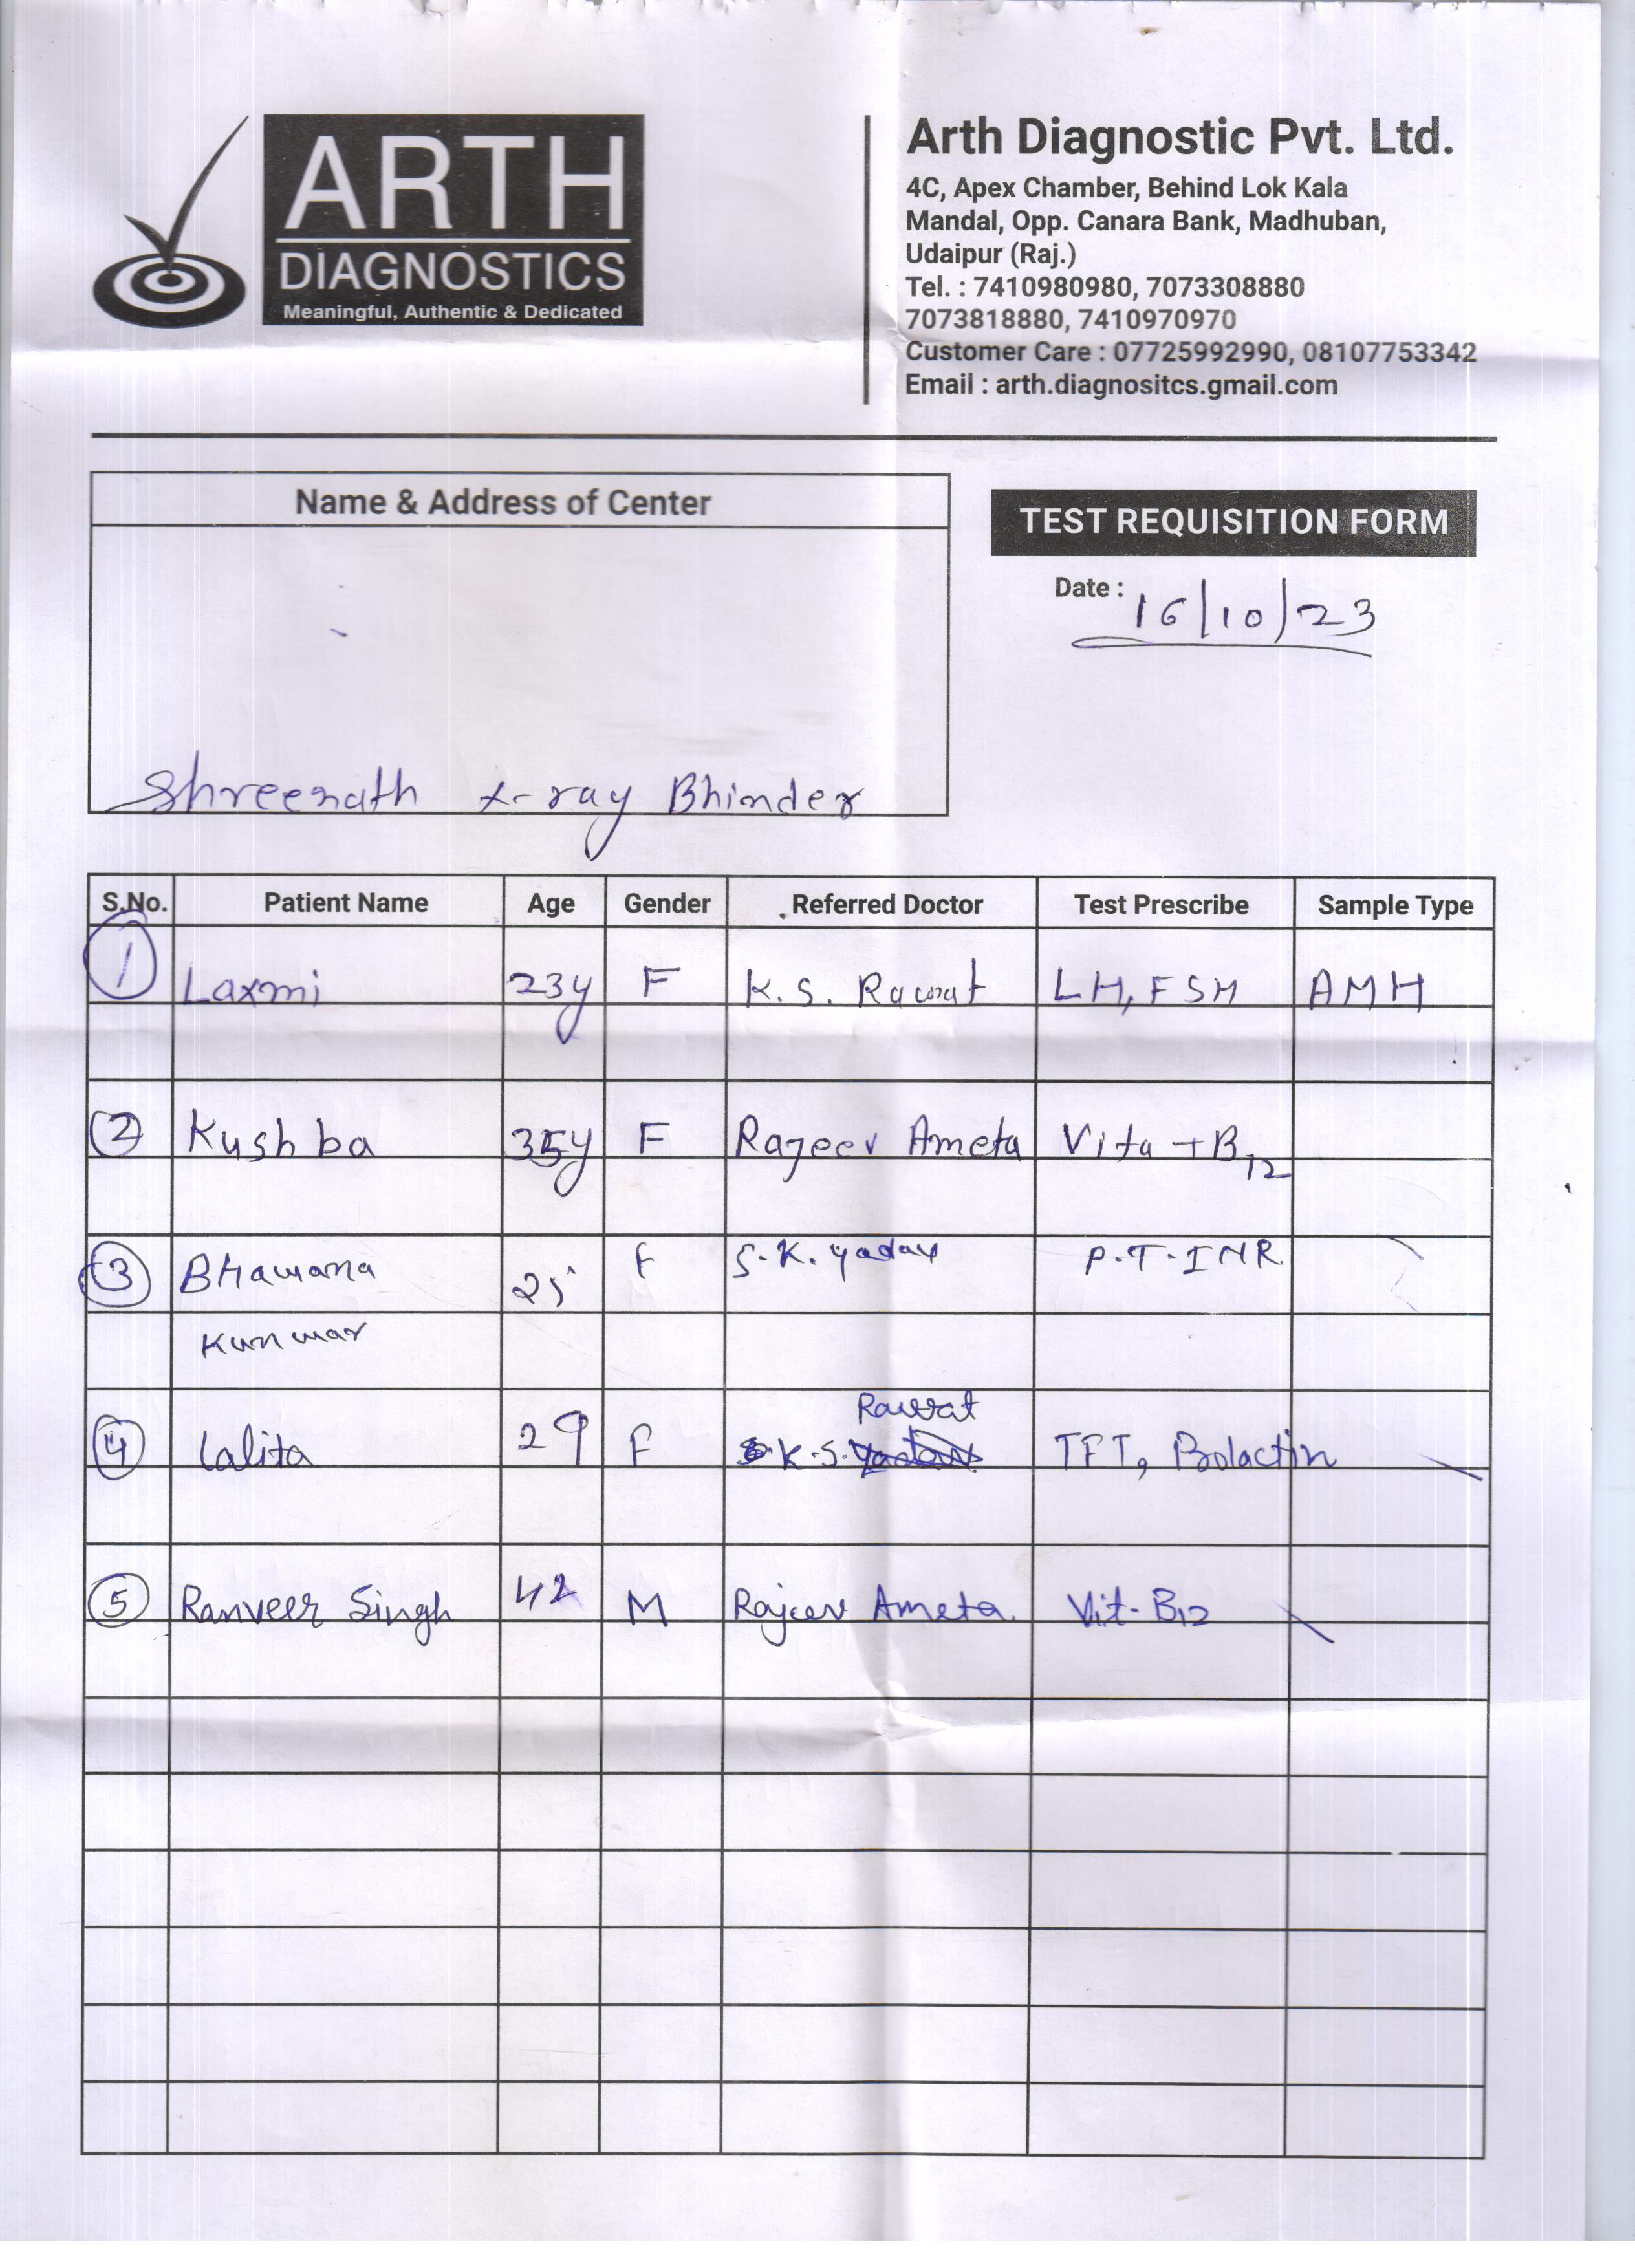 ARTH
DIAGNOSTICS
Meaningful, Authentic & Dedicated
Arth Diagnostic Pvt. Ltd.
4C, Apex Chamber, Behind Lok Kala
Mandal, Opp. Canara Bank, Madhuban,
Udaipur (Raj.)
Tel. : 7410980980, 7073308880
7073818880, 7410970970
Customer Care : 07725992990, 08107753342
Email : arth.diagnositcs.gmail.com
Name & Address of Center
TEST REQUISITION FORM
Date : 16/10/23
Shreenath x-ray Bhinder
S.No. Patient Name Age Gender Referred Doctor Test Prescribe Sample Type
1 Laxmi 23y F K. S. Rawat LH, FSH AMH
2 Kushba 35y F Rajeev Ameta Vita + B12
3 Bhawana 25 F S. K. yadav P.T. INR
Kunwar
Rawat
4 Lalita 29 F K.S. TFT, Prolactin
5 Ranveer Singh 42 M Rajeev Ameta. Vit-B12